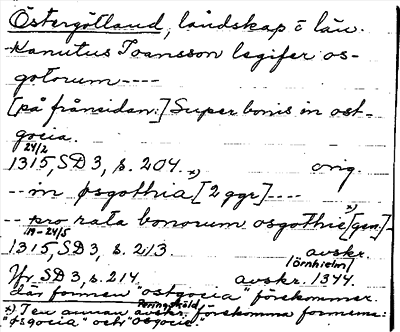 Östergötland, landskap o län.
Kanutus Joansson legifer os-
gotorum ----
[på frånsidan:] Super bonis in ost-
gocia.
24/2
1315, SD 3, s. 204. *) orig.
-- in øsgothia [2 ggr] ----
-- pro rata bonorum osgothie *) [gen.] -
19-24/5
1315, SD 3, s. 213. avskr.
/Örnhielm/
Jfr SD 3, s. 214, avskr. 1344.
där formen "ostgocia" förekommer.
Peringskiöld
*) I en annan avskr. förekomma formerna:
"øsgocia" och "osgocie".